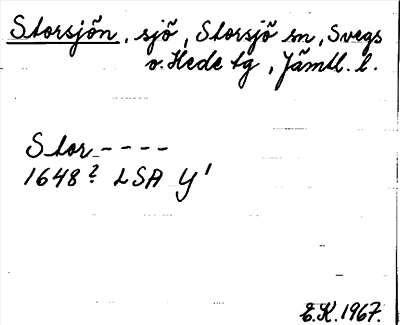 Storsjön, sjö, Storsjö sn, Svegs
o. Hede tg, Jämtl. l.
Stor----
1648? LSA Y'
E.K. 1967.